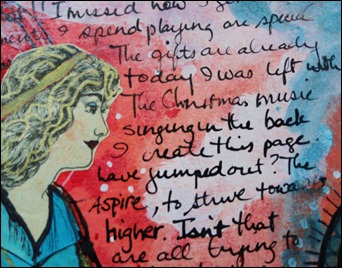 I missed how
I spend playing are special
The gifts are already
today I was left with
The Christmas music
singing in the back
I create this page
have jumped out? The
Aspire, to strive towa
higher. Isn't that
are all trying to